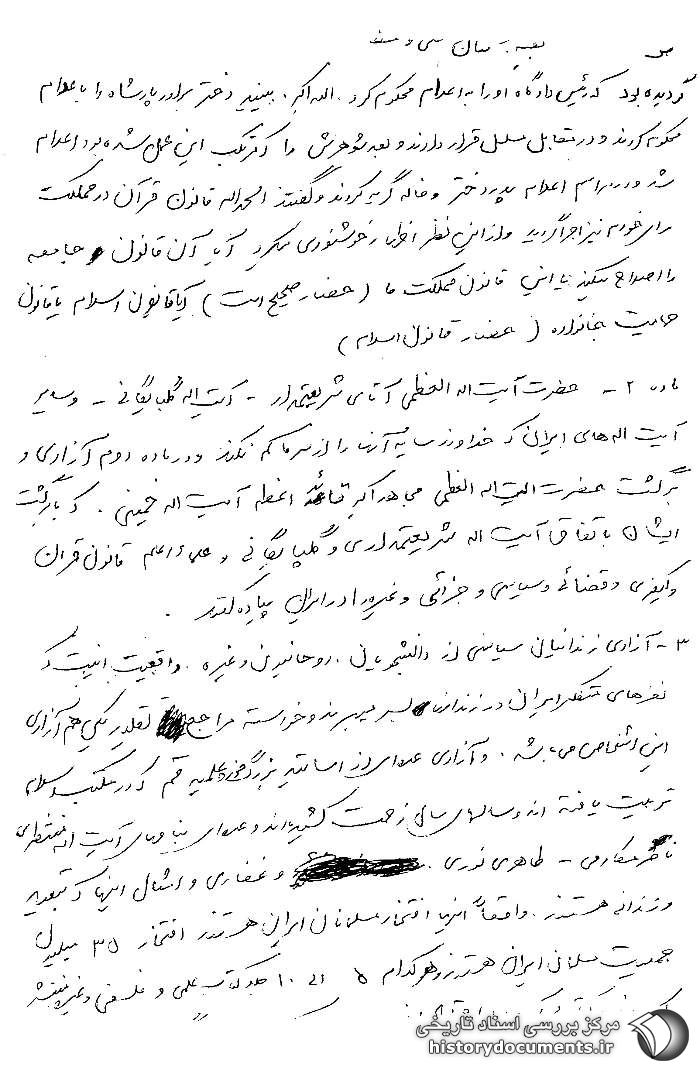 گردیده بود که رئیس دادگاه او را به اعدام محکوم کرد. الله اکبر. ببینید دختر برادر پادشاه را باعدام
محکوم کردند و در مقابل مسلسل قرار دادند و بعد شوهرش را که مرتکب این عمل شده بود اعدام
شد و در مراسم اعدام پدر دختر و خاله گریه کردند و گفتند الحمدالله قانون قرآن در مملکت
برای خودم نیز اجرا گردید و از این نظر اظهار خوشنودی میکرد آیا آن قانون جامعه
را اصلاح میکند یا این قانون مملکت ما (حضار صحیح است) آیا قانون اسلام یا قانون
حمایت خانواده (حضار قانون اسلام)
ماده ۲ - حضرت آیت اله العظمی آقای شریعتمدار - آیت اله گلپایگانی - و سایر
آیت اله های ایران که خداوند سایه آنها را از سر ما کم نکند و در ماده دوم آزادی و
برگشت حضرت آیت اله العظمی مجاهد اکبر قائد اعظم آیت اله خمینی. که با برگشت
ایشان با تفاق آیت اله شریعتمداری و گلپایگانی و علماء اعلم قانون قرآن
و کیفری و قضائی و سیاسی و جزائی و غیره را در ایران پیاده کنند.
۳ - آزادی زندانیان سیاسی از دانشجویان. روحانیون و غیره. واقعیت اینست که
مغزهای متفکر ایران در زندانها بسر میبرند و خواسته مراجع تقلید یکی هم آزادی
این اشخاص می باشد. و آزادی عده‌ای از اساتید بزرگ حوزه علمیه قم که در مکتب اسلام
تربیت یافته اند و سالهای سال زحمت کشیده‌اند و عده‌ای بنامهای آیت اله منتظری
ناصر مکارمی - طاهری نوری. و غفاری و امثال اینها که تبعید
و زندانی هستند. واقعاً اینها افتخار مسلمانان ایران هستند افتخار ۳۵ میلیون
جمعیت مسلمان ایران هستند و هر کدام ۵ الی ۱۰ جلد کتاب علمی و فلسفی و غیره نوشته
مرکز بررسی اسناد تاریخی
historydocuments.ir